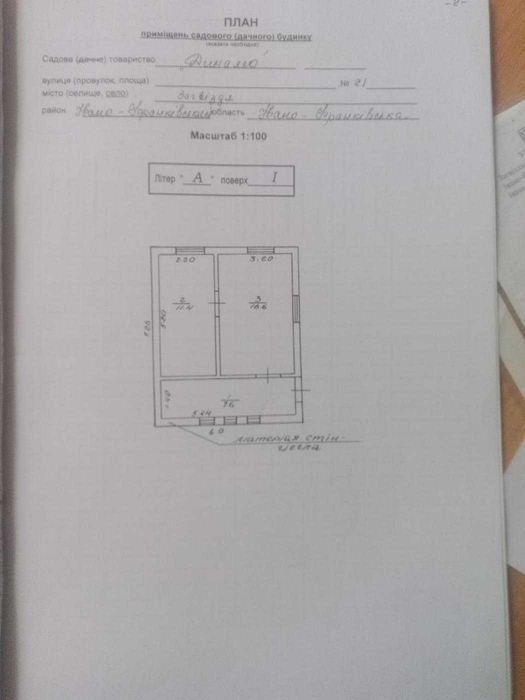 - 8 -
ПЛАН
приміщень садового (дачного) будинку
Садове (дачне) товариство "Динамо"
вулиця (провулок, площа) № 21
місто (селище, село) Загвіздя
район Івано-Франківський область Івано-Франківська
Масштаб 1:100
Літер " А " поверх I
2.20 3.20
2
11.4
3
16.6
5.20
1
7.6
1.40
5.24
6.0
матеріал стін-
цегла